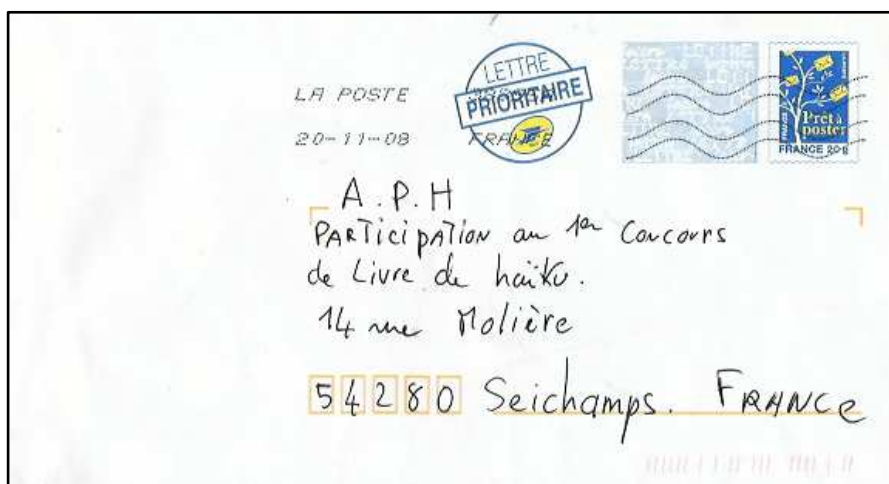 LETTRE
PRIORITAIRE
LA POSTE
20-11-08 FRANCE
Prêt à
poster
FRANCE 20g
A.P.H
PARTICIPATION au 1er Concours
de Livre de haïku.
14 rue Molière
54280 Seichamps. FRANCE